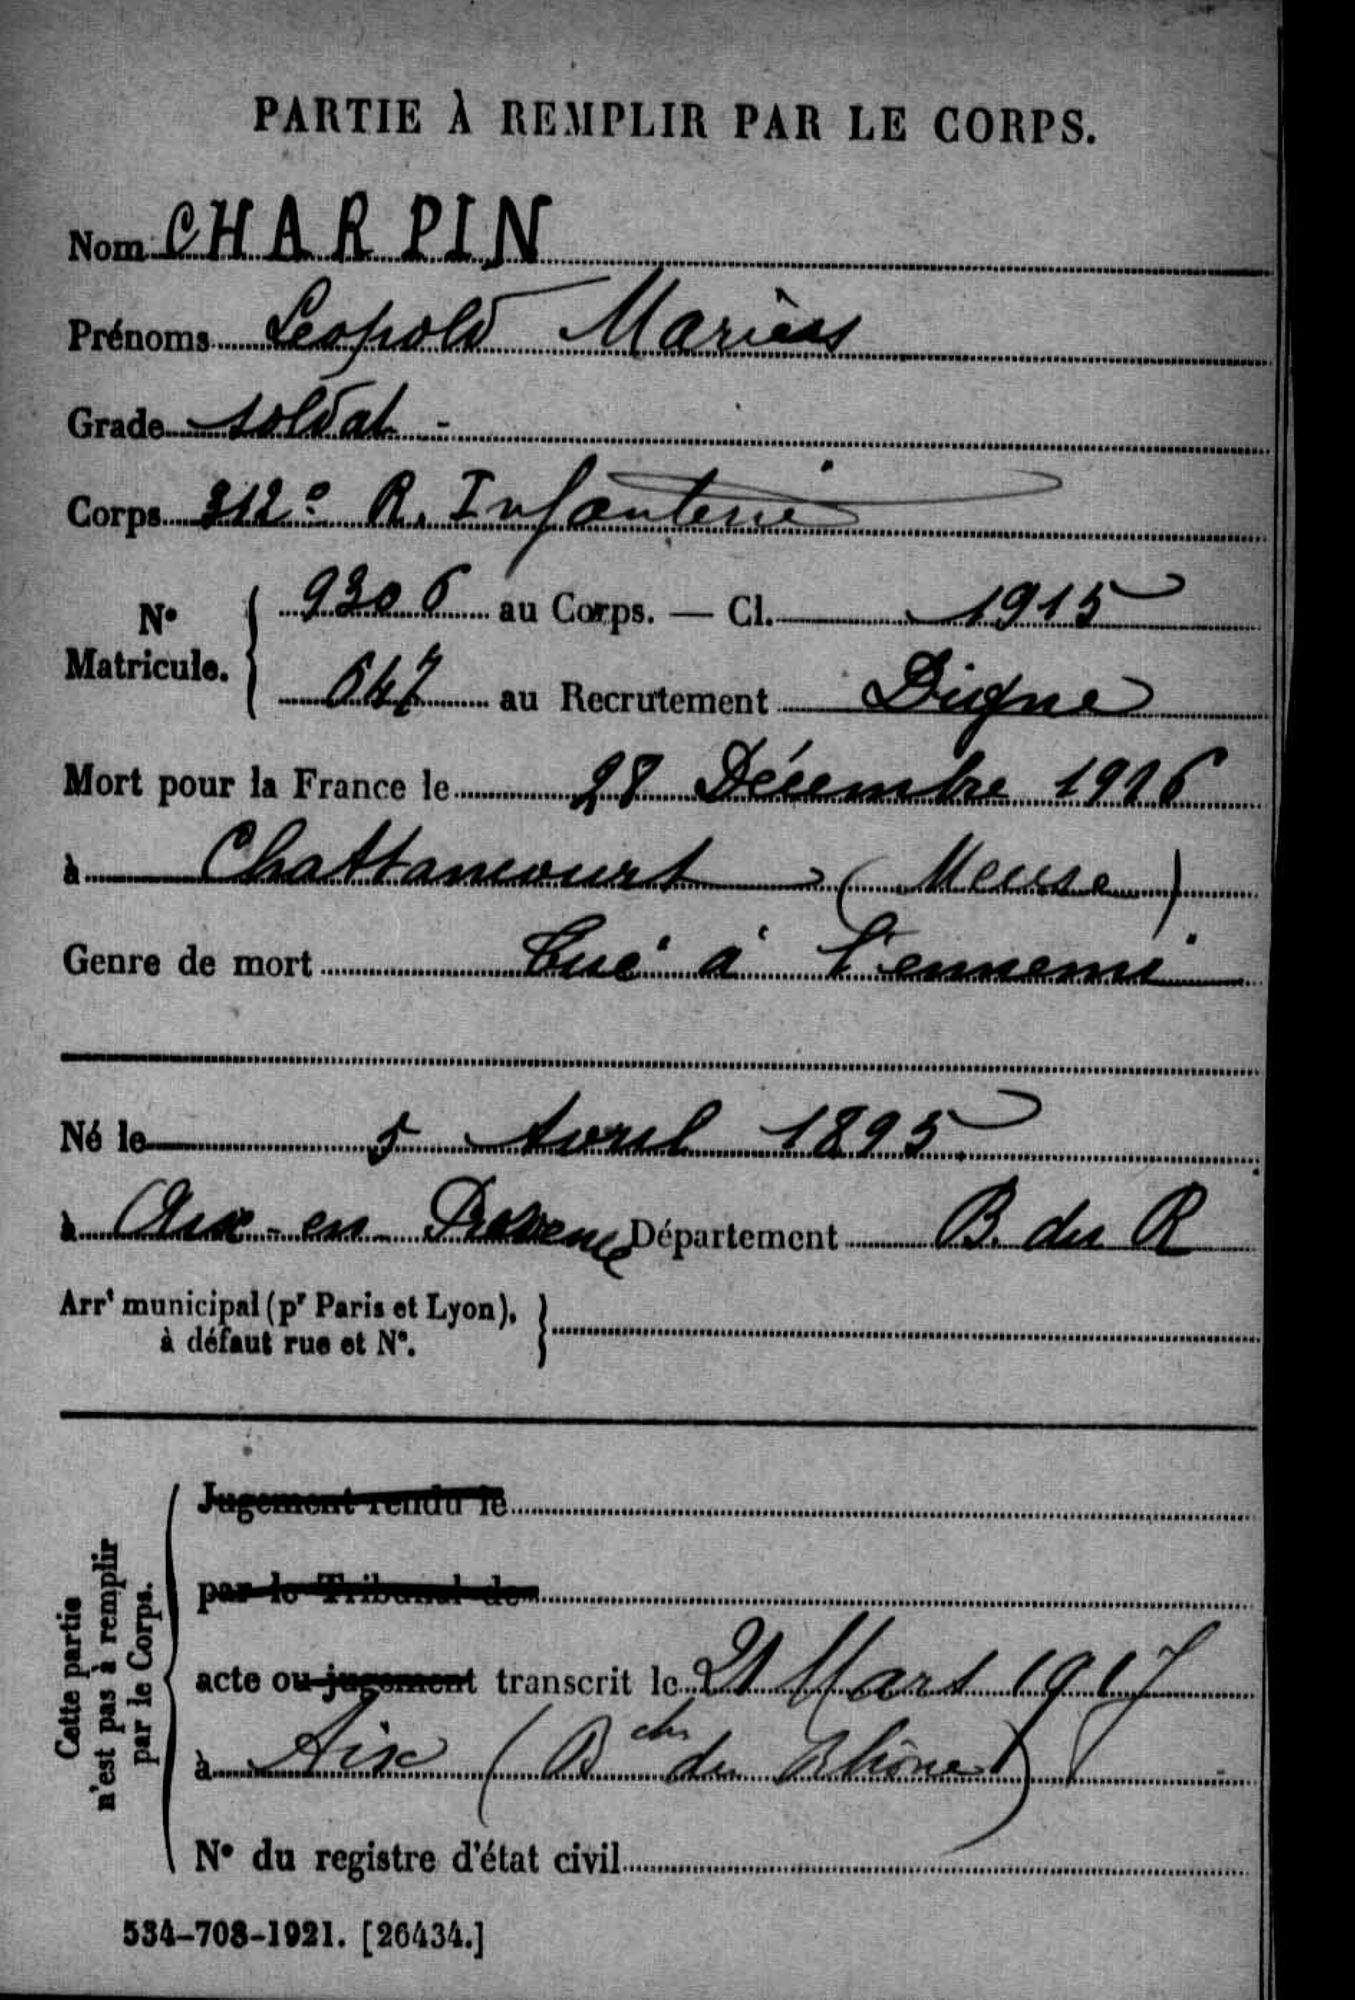 PARTIE À REMPLIR PAR LE CORPS.
Nom CHARPIN
Prénoms Leopold Marius
Grade soldat -
Corps 312e R. Infanterie
N° Matricule. { 9306 au Corps. — Cl. 1915
647 au Recrutement Digne
Mort pour la France le 28 Décembre 1916
à Chattancourt (Meuse)
Genre de mort Tué à l'ennemi
Né le 5 Avril 1895
à Aix-en Provence Département B. du R
Arrt municipal (pr Paris et Lyon),
à défaut rue et N°. }
Cette partie
n'est pas à remplir
par le Corps.
Jugement rendu le
par le Tribunal de
acte ou jugement transcrit le 21 Mars 1917
à Aix (Bches du Rhône)
N° du registre d'état civil
534-708-1921. [26434.]